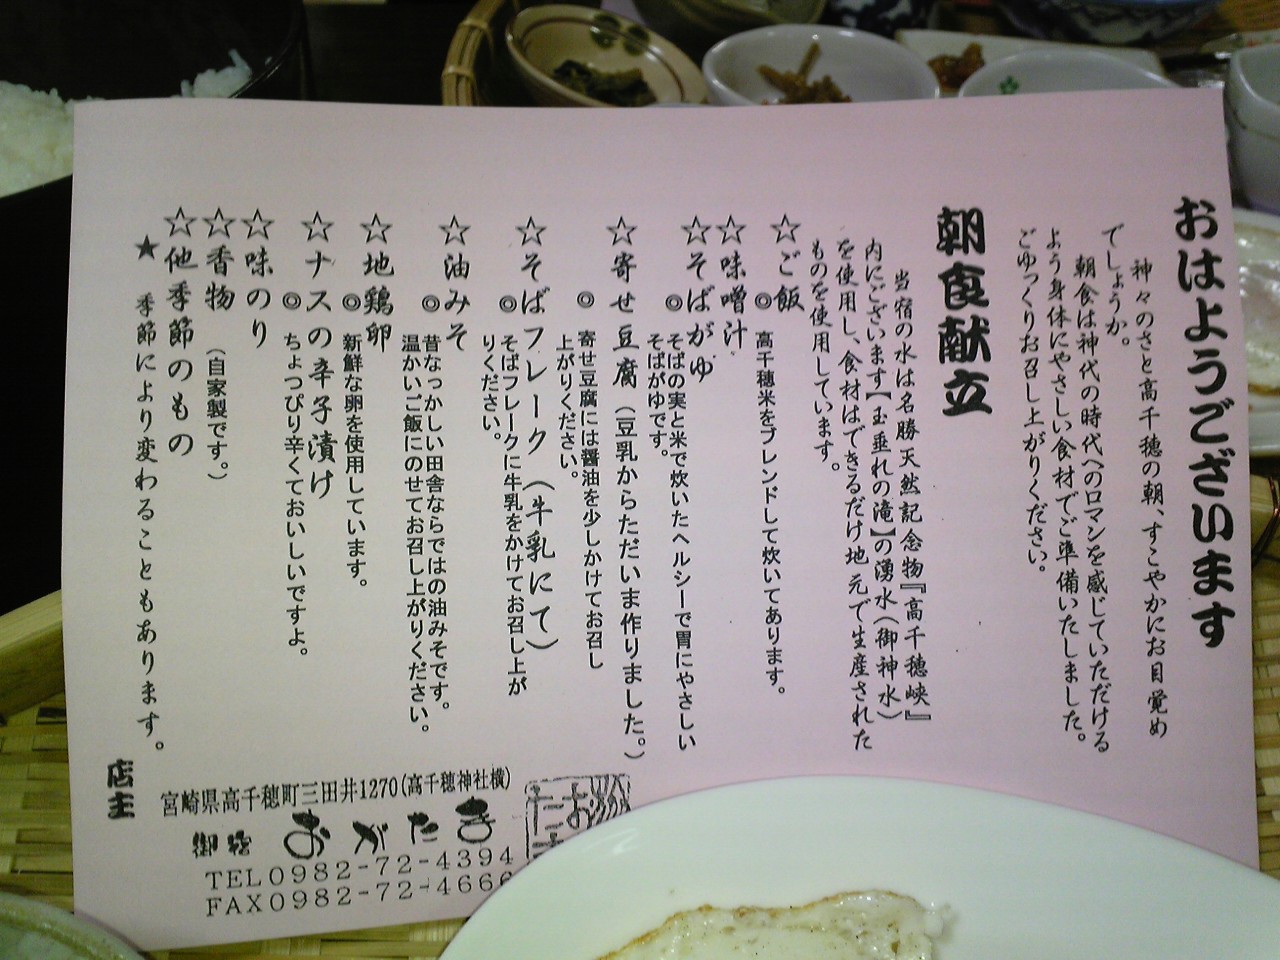 おはようございます
神々のさと高千穂の朝、すこやかにお目覚め
でしょうか。
朝食は神代の時代へのロマンを感じていただける
よう身体にやさしい食材でご準備いたしました。
ごゆっくりお召し上がりください。
朝食献立
当宿の水は名勝天然記念物『高千穂峡』
内にございます【玉垂れの滝】の湧水(御神水)
を使用し、食材はできるだけ地元で生産された
ものを使用しています。
☆ご飯
◎高千穂米をブレンドして炊いてあります。
☆味噌汁
☆そばがゆ
◎そばの実と米で炊いたヘルシーで胃にやさしい
そばがゆです。
☆寄せ豆腐(豆乳からただいま作りました。)
◎寄せ豆腐には醤油を少しかけてお召し
上がりください。
☆そばフレーク(牛乳にて)
◎そばフレークに牛乳をかけてお召し上が
りください。
☆油みそ
◎昔なつかしい田舎ならではの油みそです。
温かいご飯にのせてお召し上がりください。
☆地鶏卵
◎新鮮な卵を使用しています。
☆ナスの辛子漬け
◎ちょっぴり辛くておいしいですよ。
☆味のり
☆香物(自家製です。)
☆他季節のもの
★季節により変わることもあります。
店主
宮崎県高千穂町三田井1270(高千穂神社横)
御宿 おがたま
TEL0982-72-4394
FAX0982-72-4666